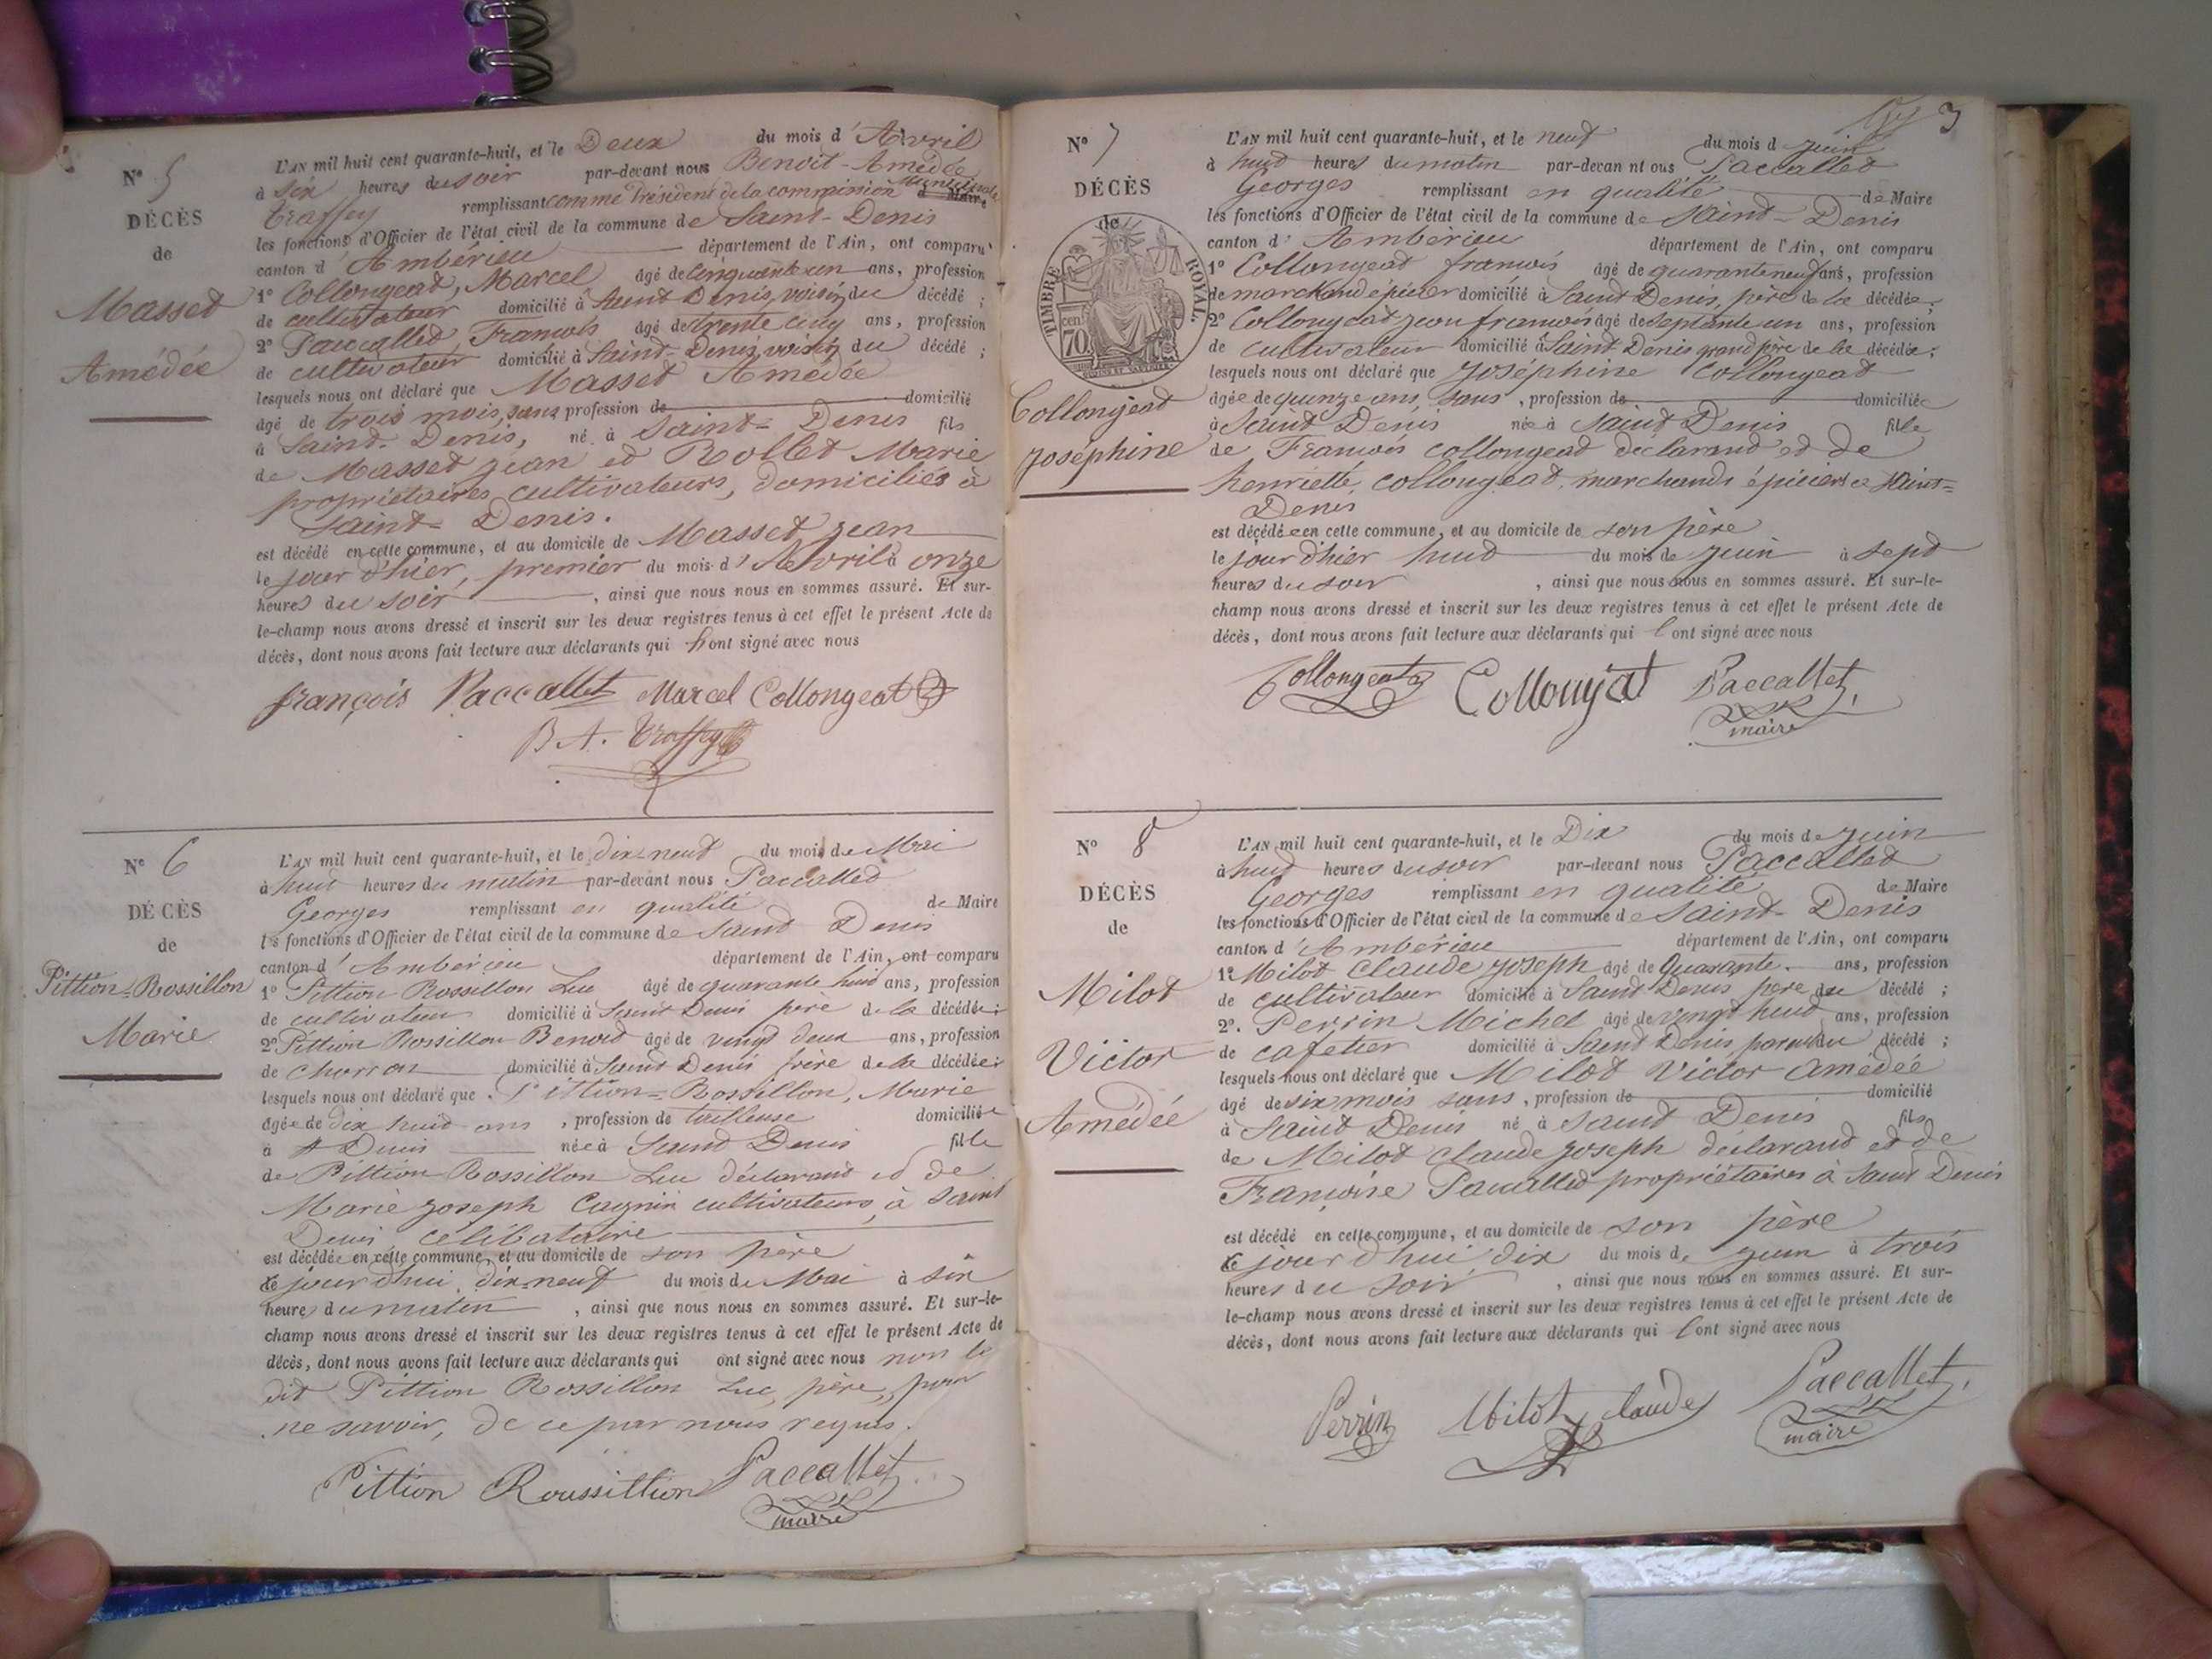 N° 5
DÉCÈS
de
Masset
Amédée
L'AN mil huit cent quarante-huit, et le Deux du mois d'Avril
à six heures du soir par-devant nous Benoit-Amédée
Traffey remplissant comme Président de la commission municipale d Maire
les fonctions d'Officier de l'état civil de la commune de Saint-Denis
canton d'Ambérieu département de l'Ain, ont comparu
1° Collongeat, Marcel âgé de cinquante un ans, profession
de cultivateur domicilié à Saint Denis, voisin du décédé ;
2° Paccallet, François âgé de trente cinq ans, profession
de cultivateur domicilié à Saint-Denis, voisin du décédé ;
lesquels nous ont déclaré que Masset Amédée
âgé de trois mois, sans profession de domicilié
à Saint-Denis, né à Saint-Denis fils
de Masset Jean et Rollet Marie
propriétaires cultivateurs, domiciliés à
Saint-Denis.
est décédé en cette commune, et au domicile de Masset Jean
le jour d'hier, premier du mois d'Avril à onze
heures du soir , ainsi que nous nous en sommes assuré. Et sur-
le-champ nous avons dressé et inscrit sur les deux registres tenus à cet effet le présent Acte de
décès, dont nous avons fait lecture aux déclarants qui l'ont signé avec nous
françois Paccallet Marcel Collongeat
B A. Traffey
N° 6
DÉCÈS
de
Pittion-Rossillon
Marie
L'AN mil huit cent quarante-huit, et le dix-neuf du mois de Mai
à huit heures du matin par-devant nous Paccallet
Georges remplissant en qualité de Maire
les fonctions d'Officier de l'état civil de la commune de Saint Denis
canton d'Ambérieu département de l'Ain, ont comparu
1° Pittion Rossillon Luc âgé de quarante huit ans, profession
de cultivateur domicilié à Saint Denis père de la décédée ;
2° Pittion Rossillon Benoit âgé de vingt deux ans, profession
de charron domicilié à Saint Denis frère de la décédée ;
lesquels nous ont déclaré que Pittion-Rossillon, Marie
âgée de dix huit ans , profession de tailleuse domiciliée
à St Denis née à Saint Denis fille
de Pittion Rossillon Luc déclarant et de
Marie Joseph Cagnin cultivateurs à Saint
Denis célibataire
est décédée en cette commune, et au domicile de son père
ce jourd'hui dix-neuf du mois de Mai à six
heures du matin , ainsi que nous nous en sommes assuré. Et sur-le-
champ nous avons dressé et inscrit sur les deux registres tenus à cet effet le présent Acte de
décès, dont nous avons fait lecture aux déclarants qui ont signé avec nous non le
dit Pittion Rossillon Luc, père, pour
ne savoir, de ce par nous requis.
Pittion Roussillion Paccallet
maire
3
N° 7
DÉCÈS
de
TIMBRE ROYAL.
70 cen
Collongeat
Joséphine
L'AN mil huit cent quarante-huit, et le neuf du mois d Juin
à huit heures du matin par-devan nt ous Paccallet
Georges remplissant en qualité de Maire
les fonctions d'Officier de l'état civil de la commune de Saint-Denis
canton d'Ambérieu département de l'Ain, ont comparu
1° Collongeat françois âgé de quarante neuf ans, profession
de marchand épicier domicilié à Saint Denis, père de la décédée ;
2° Collongeat Jean françois âgé de septante un ans, profession
de cultivateur domicilié à Saint Denis grand père de la décédée ;
lesquels nous ont déclaré que Joséphine Collongeat
âgée de quinze ans, sans , profession de domiciliée
à Saint Denis née à Saint Denis fille
de François Collongeat déclarant et de
henriette Collongeat, marchands épiciers à Saint-
Denis
est décédée en cette commune, et au domicile de son père
le jour d'hier huit du mois de Juin à sept
heures du soir , ainsi que nous nous en sommes assuré. Et sur-le-
champ nous avons dressé et inscrit sur les deux registres tenus à cet effet le présent Acte de
décès, dont nous avons fait lecture aux déclarants qui l'ont signé avec nous
Collongeat Collonjat Paccallet,
maire
N° 8
DÉCÈS
de
Milot
Victor
Amédée
L'AN mil huit cent quarante-huit, et le Dix du mois de Juin
à huit heures du soir par-devant nous Paccallet
Georges remplissant en qualité de Maire
les fonctions d'Officier de l'état civil de la commune de Saint-Denis
canton d'Ambérieu département de l'Ain, ont comparu
1° Milot Claude Joseph âgé de Quarante. ans, profession
de cultivateur domicilié à Saint Denis père du décédé ;
2°. Perrin Michel âgé de vingt huit ans, profession
de cafetier domicilié à Saint Denis, parent du décédé ;
lesquels nous ont déclaré que Milot Victor Amédée
âgé de six mois sans , profession de domicilié
à Saint Denis né à Saint Denis fils
de Milot Claude Joseph déclarant et de
Françoise Paccallet propriétaires à Saint Denis
est décédé en cette commune, et au domicile de son père
ce jourd'hui dix du mois de Juin à trois
heures du soir , ainsi que nous nous en sommes assuré. Et sur-
le-champ nous avons dressé et inscrit sur les deux registres tenus à cet effet le présent Acte de
décès, dont nous avons fait lecture aux déclarants qui l'ont signé avec nous
Perrin Milot Claude Paccallet,
maire